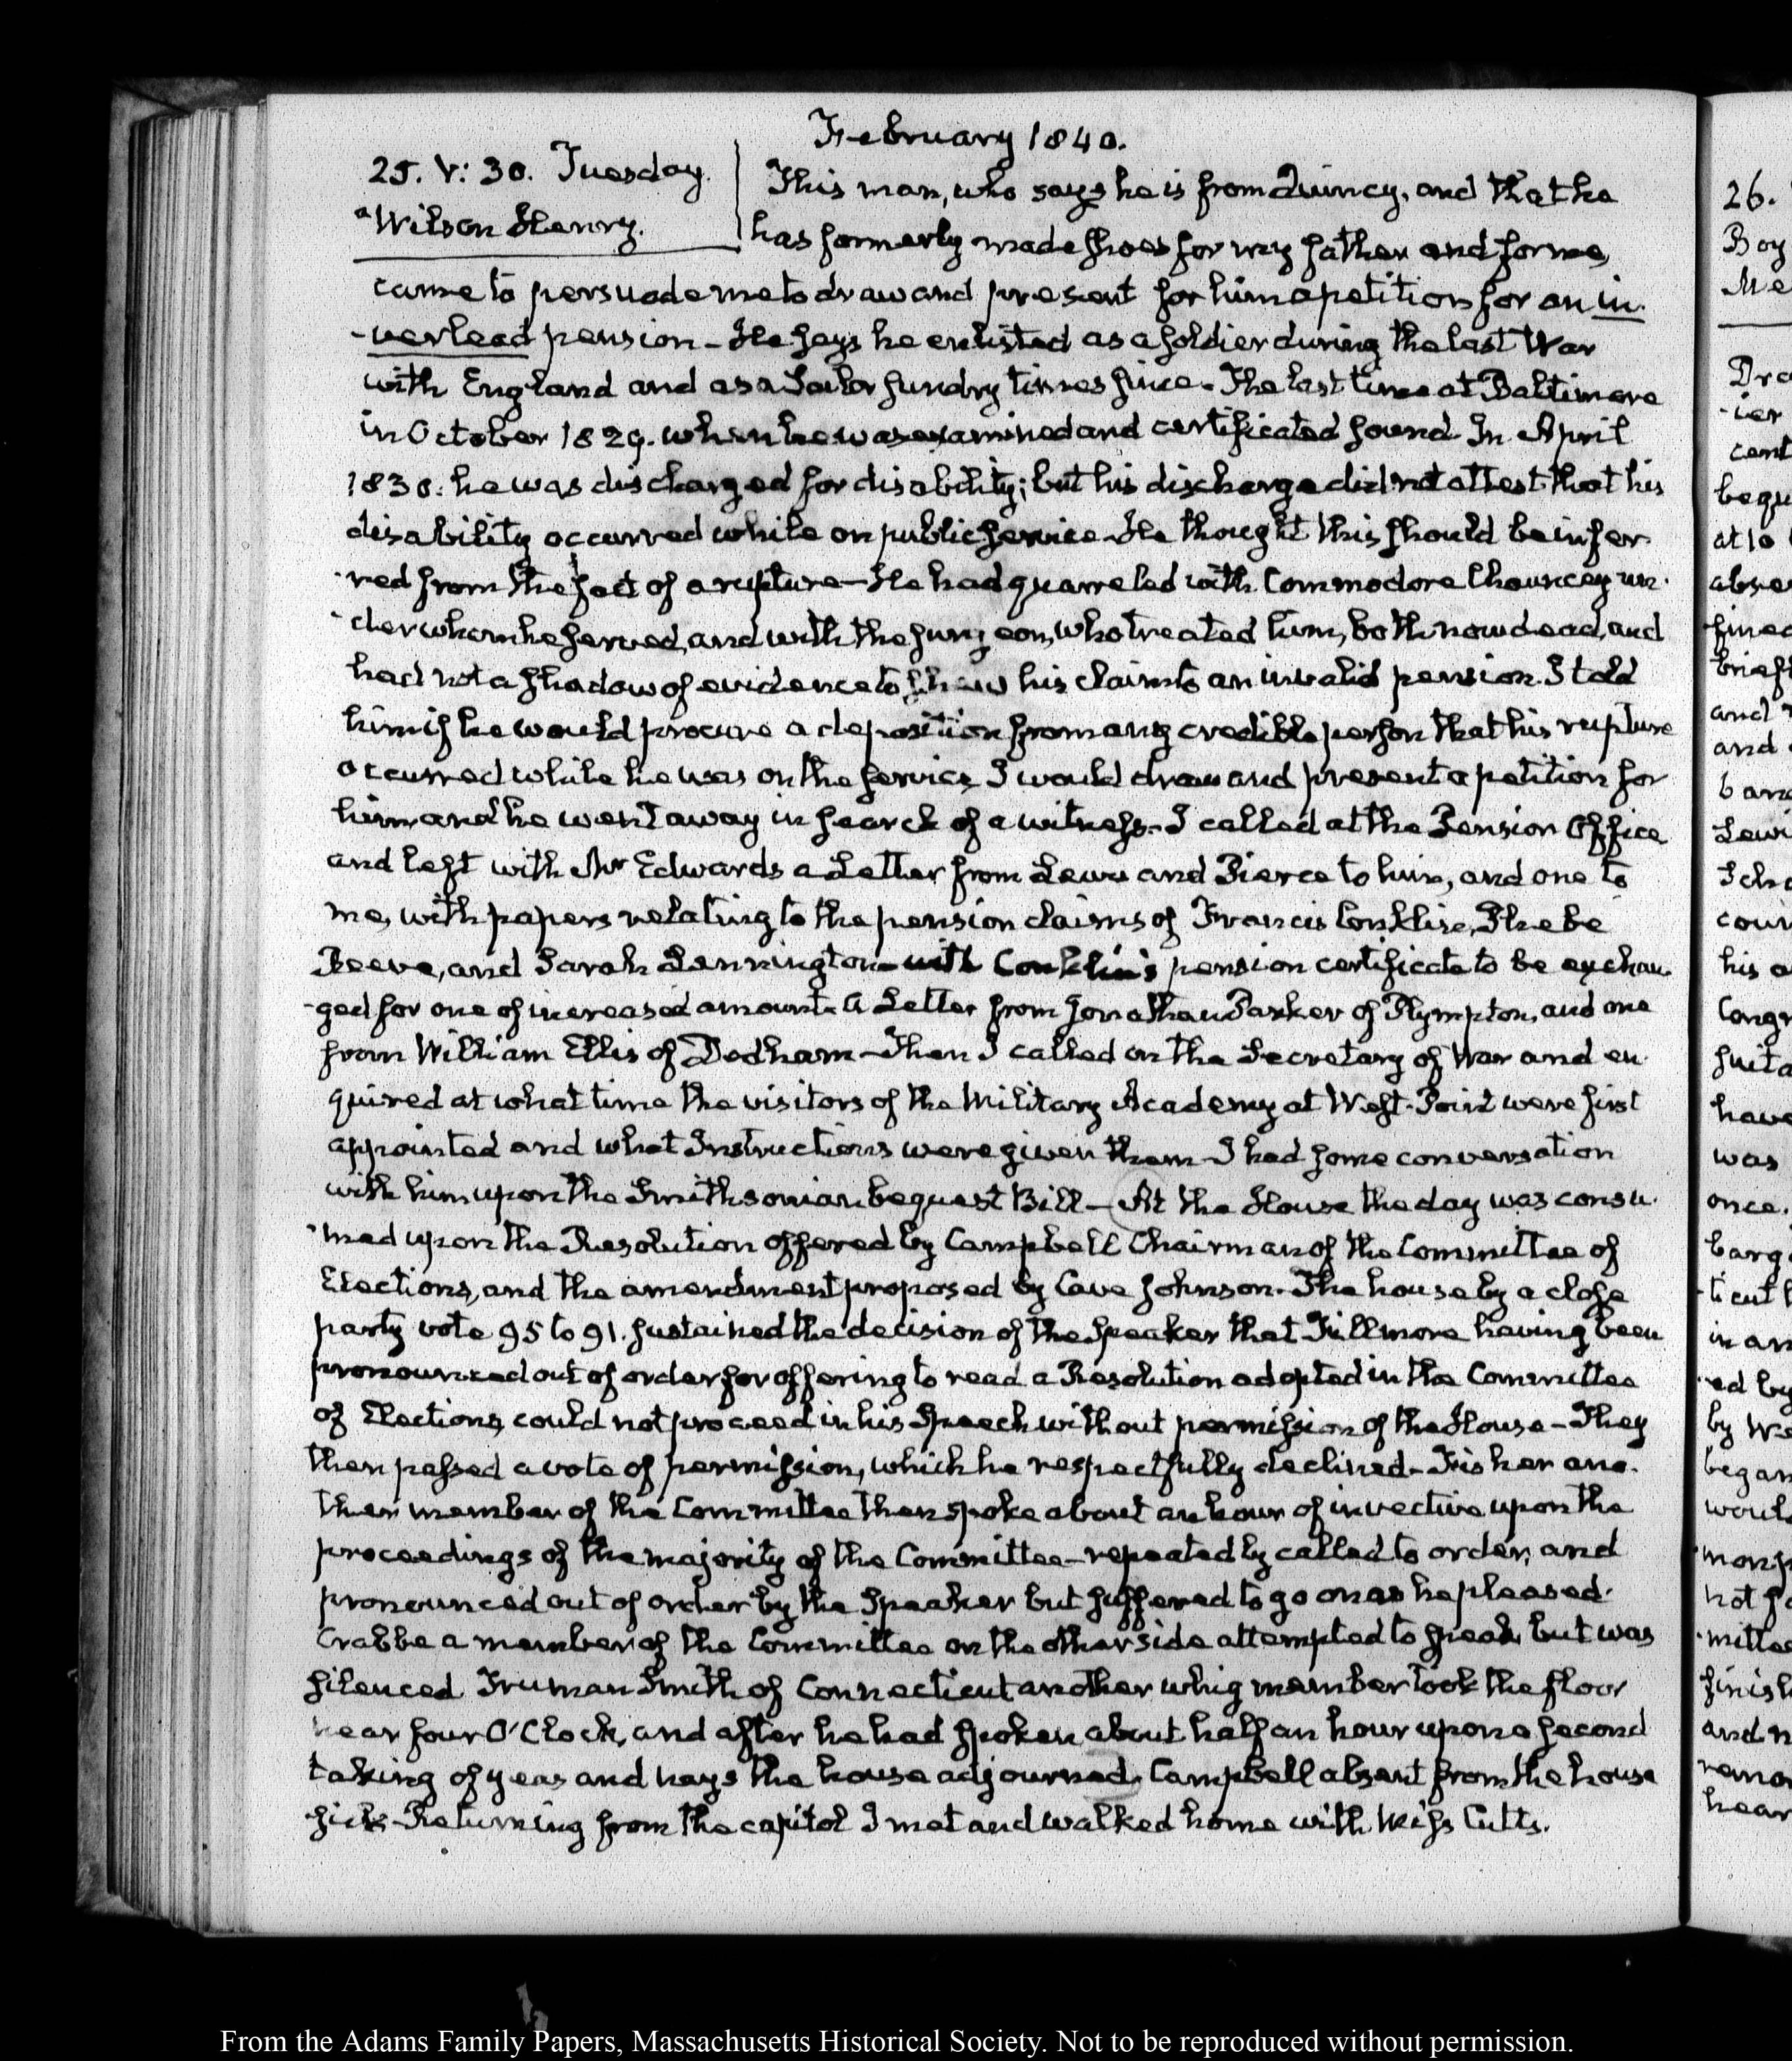 February 1840.
25. V: 30. Tuesday.
a Wilson Henry.
This man, who says he is from Quincy, and that he
has formerly made shoes for my father and for me,
came to persuade me to draw and present for him a petition for an in-
-verlead pension - He says he enlisted as a soldier during the last War
with England and as a Sailor sundry times since - The last time at Baltimore
in October 1829. when he was examined and certificated sound. In April
1830. he was discharged for disability; but his discharge did not attest that his
disability occurred while on public service - He thought this should be infer-
-red from the fact of a rupture - He had quarreled with Commodore Chauncey un-
-der whom he served, and with the surgeon, who treated him, both now dead, and
had not a shadow of evidence to shew his claim to an invalid pension. I told
him if he would procure a deposition from any credible person that his rupture
occurred while he was on the service, I would draw and present a petition for
him and he went away in search of a witness - I called at the Pension Office
and left with Mr Edwards a Letter from Lewis and Pierce to him, and one to
me, with papers relating to the pension claims of Francis Conklin, Phebe
Reeve, and Sarah Dennington - with Conklin's pension certificate to be exchan-
-ged for one of increased amount. A Letter from Jonathan Parker of Plympton, and one
from William Ellis of Dedham - Then I called on the Secretary of War and en-
quired at what time the visitors of the Military Academy at West-Point were first
appointed and what Instructions were given them - I had some conversation
with him upon the Smithsonian bequest Bill - At the House the day was consu-
-med upon the Resolution offered by Campbell Chairman of the Committee of
Elections, and the amendment proposed by Cave Johnson. The house by a close
party vote 95 to 91. sustained the decision of the Speaker that Fillmore having been
pronounced out of order for offering to read a Resolution adopted in the Committee
of Elections, could not proceed in his Speech without permission of the House - They
then passed a vote of permission, which he respectfully declined - Fisher ano-
ther member of the Committee then spoke about an hour of invective upon the
proceedings of the majority of the Committee - repeatedly called to order, and
pronounced out of order by the Speaker but suffered to go on as he pleased.
Crabbe a member of the Committee on the other side attempted to speak but was
silenced Truman Smith of Connecticut another whig member took the floor
near four O'Clock, and after he had spoken about half an hour upon a second
taking of yeas and nays the house adjourned. Campbell absent from the house
sick - Returning from the capitol I met and walked home with Miss Cutts.
26.
Boy
Me
Dra
-ier
cent
bequ
at 10
abse
fined
brief
and
and
b and
Lewi
Scho
cour
his a
Congr
suita
have
was
once.
barg
ticut
in an
-ed by
by We
began
would
not
-mittee
finish
and n
remo
hear
From the Adams Family Papers, Massachusetts Historical Society. Not to be reproduced without permission.